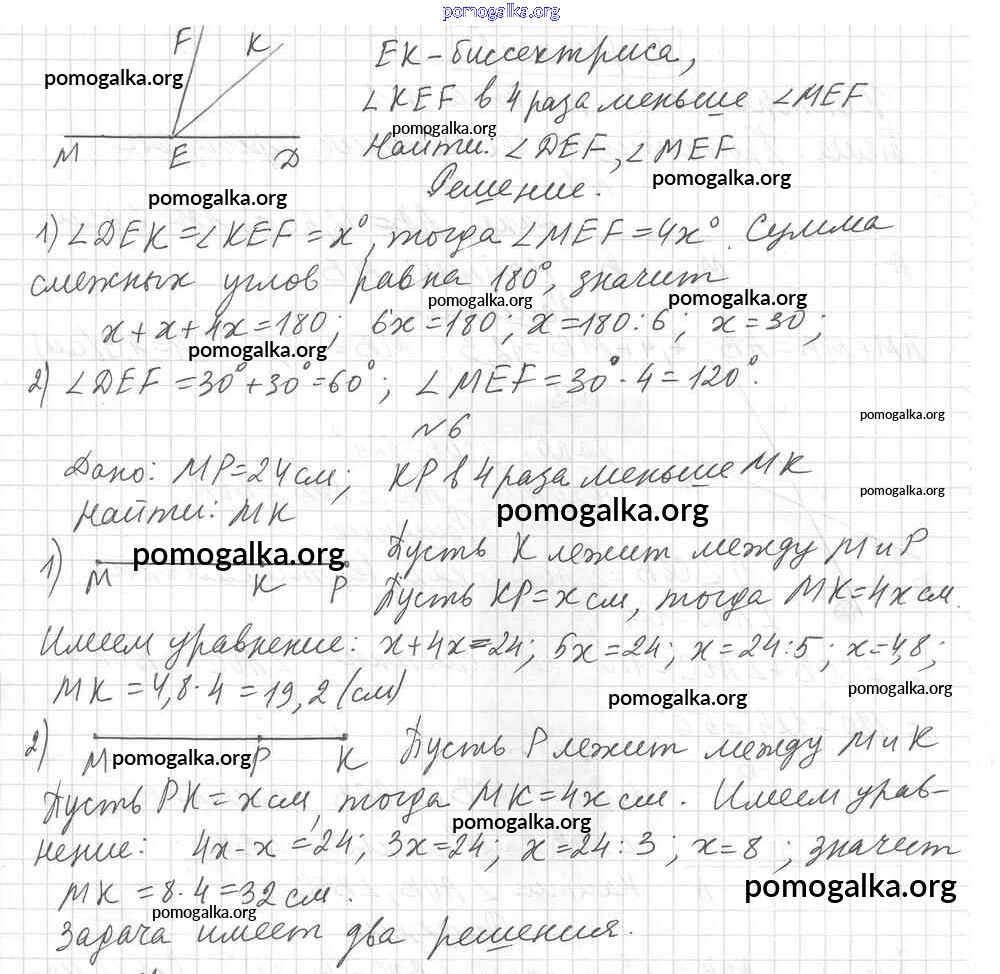 pomogalka.org
F K
EK - биссектриса,
pomogalka.org
∠KEF в 4 раза меньше ∠MEF
pomogalka.org
M E D
Найти: ∠DEF, ∠MEF
pomogalka.org
Решение.
pomogalka.org
1) ∠DEK = ∠KEF = x°, тогда ∠MEF = 4x°. Сумма
смежных углов равна 180°, значит
pomogalka.org pomogalka.org
x + x + 4x = 180; 6x = 180; x = 180 : 6; x = 30;
pomogalka.org
2) ∠DEF = 30° + 30° = 60°; ∠MEF = 30° · 4 = 120°.
pomogalka.org
№6
Дано: MP = 24 см; KP в 4 раза меньше MK
pomogalka.org
Найти: MK
pomogalka.org
1) Пусть K лежит между M и P
pomogalka.org
M K P
Пусть KP = x см, тогда MK = 4x см.
Имеем уравнение: x + 4x = 24; 5x = 24; x = 24 : 5; x = 4,8;
MK = 4,8 · 4 = 19,2 (см)
pomogalka.org pomogalka.org
2) Пусть P лежит между M и K
M P K
pomogalka.org
Пусть PK = x см, тогда MK = 4x см. Имеем урав-
pomogalka.org
нение: 4x - x = 24; 3x = 24; x = 24 : 3; x = 8; значит
MK = 8 · 4 = 32 см.
pomogalka.org
pomogalka.org
Задача имеет два решения.